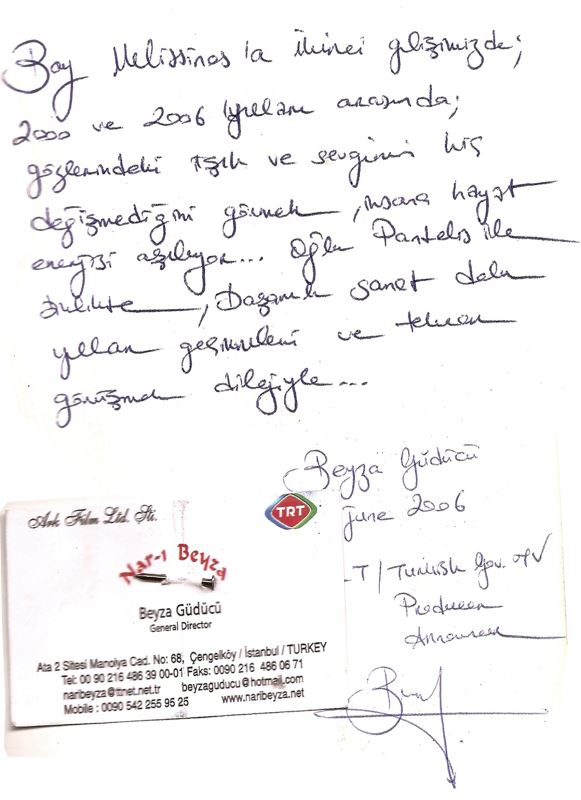 Bay Melissinos'a ikinci gelişimizde;
2000 ve 2006 yılları arasında;
gözlerindeki ışık ve sevginin hiç
değişmediğini görmek, insana hayat
enerjisi aşılıyor... Oğlu Pantelis ile
birlikte, Başarılı sanat dolu
yılları geçirmeleri ve tekrar
görüşmek dileğiyle...
Beyza Güdücü
June 2006
TRT / Turkish Gov. TV
Producer
Announcer
Ark Film Ltd. Sti.
TRT
Nar-ı Beyza
Beyza Güdücü
General Director
Ata 2 Sitesi Manolya Cad. No: 68, Çengelköy / İstanbul / TURKEY
Tel: 00 90 216 486 39 00-01 Faks: 0090 216 486 06 71
naribeyza@ttnet.net.tr beyzaguducu@hotmail.com
Mobile : 0090 542 255 95 25 www.naribeyza.net